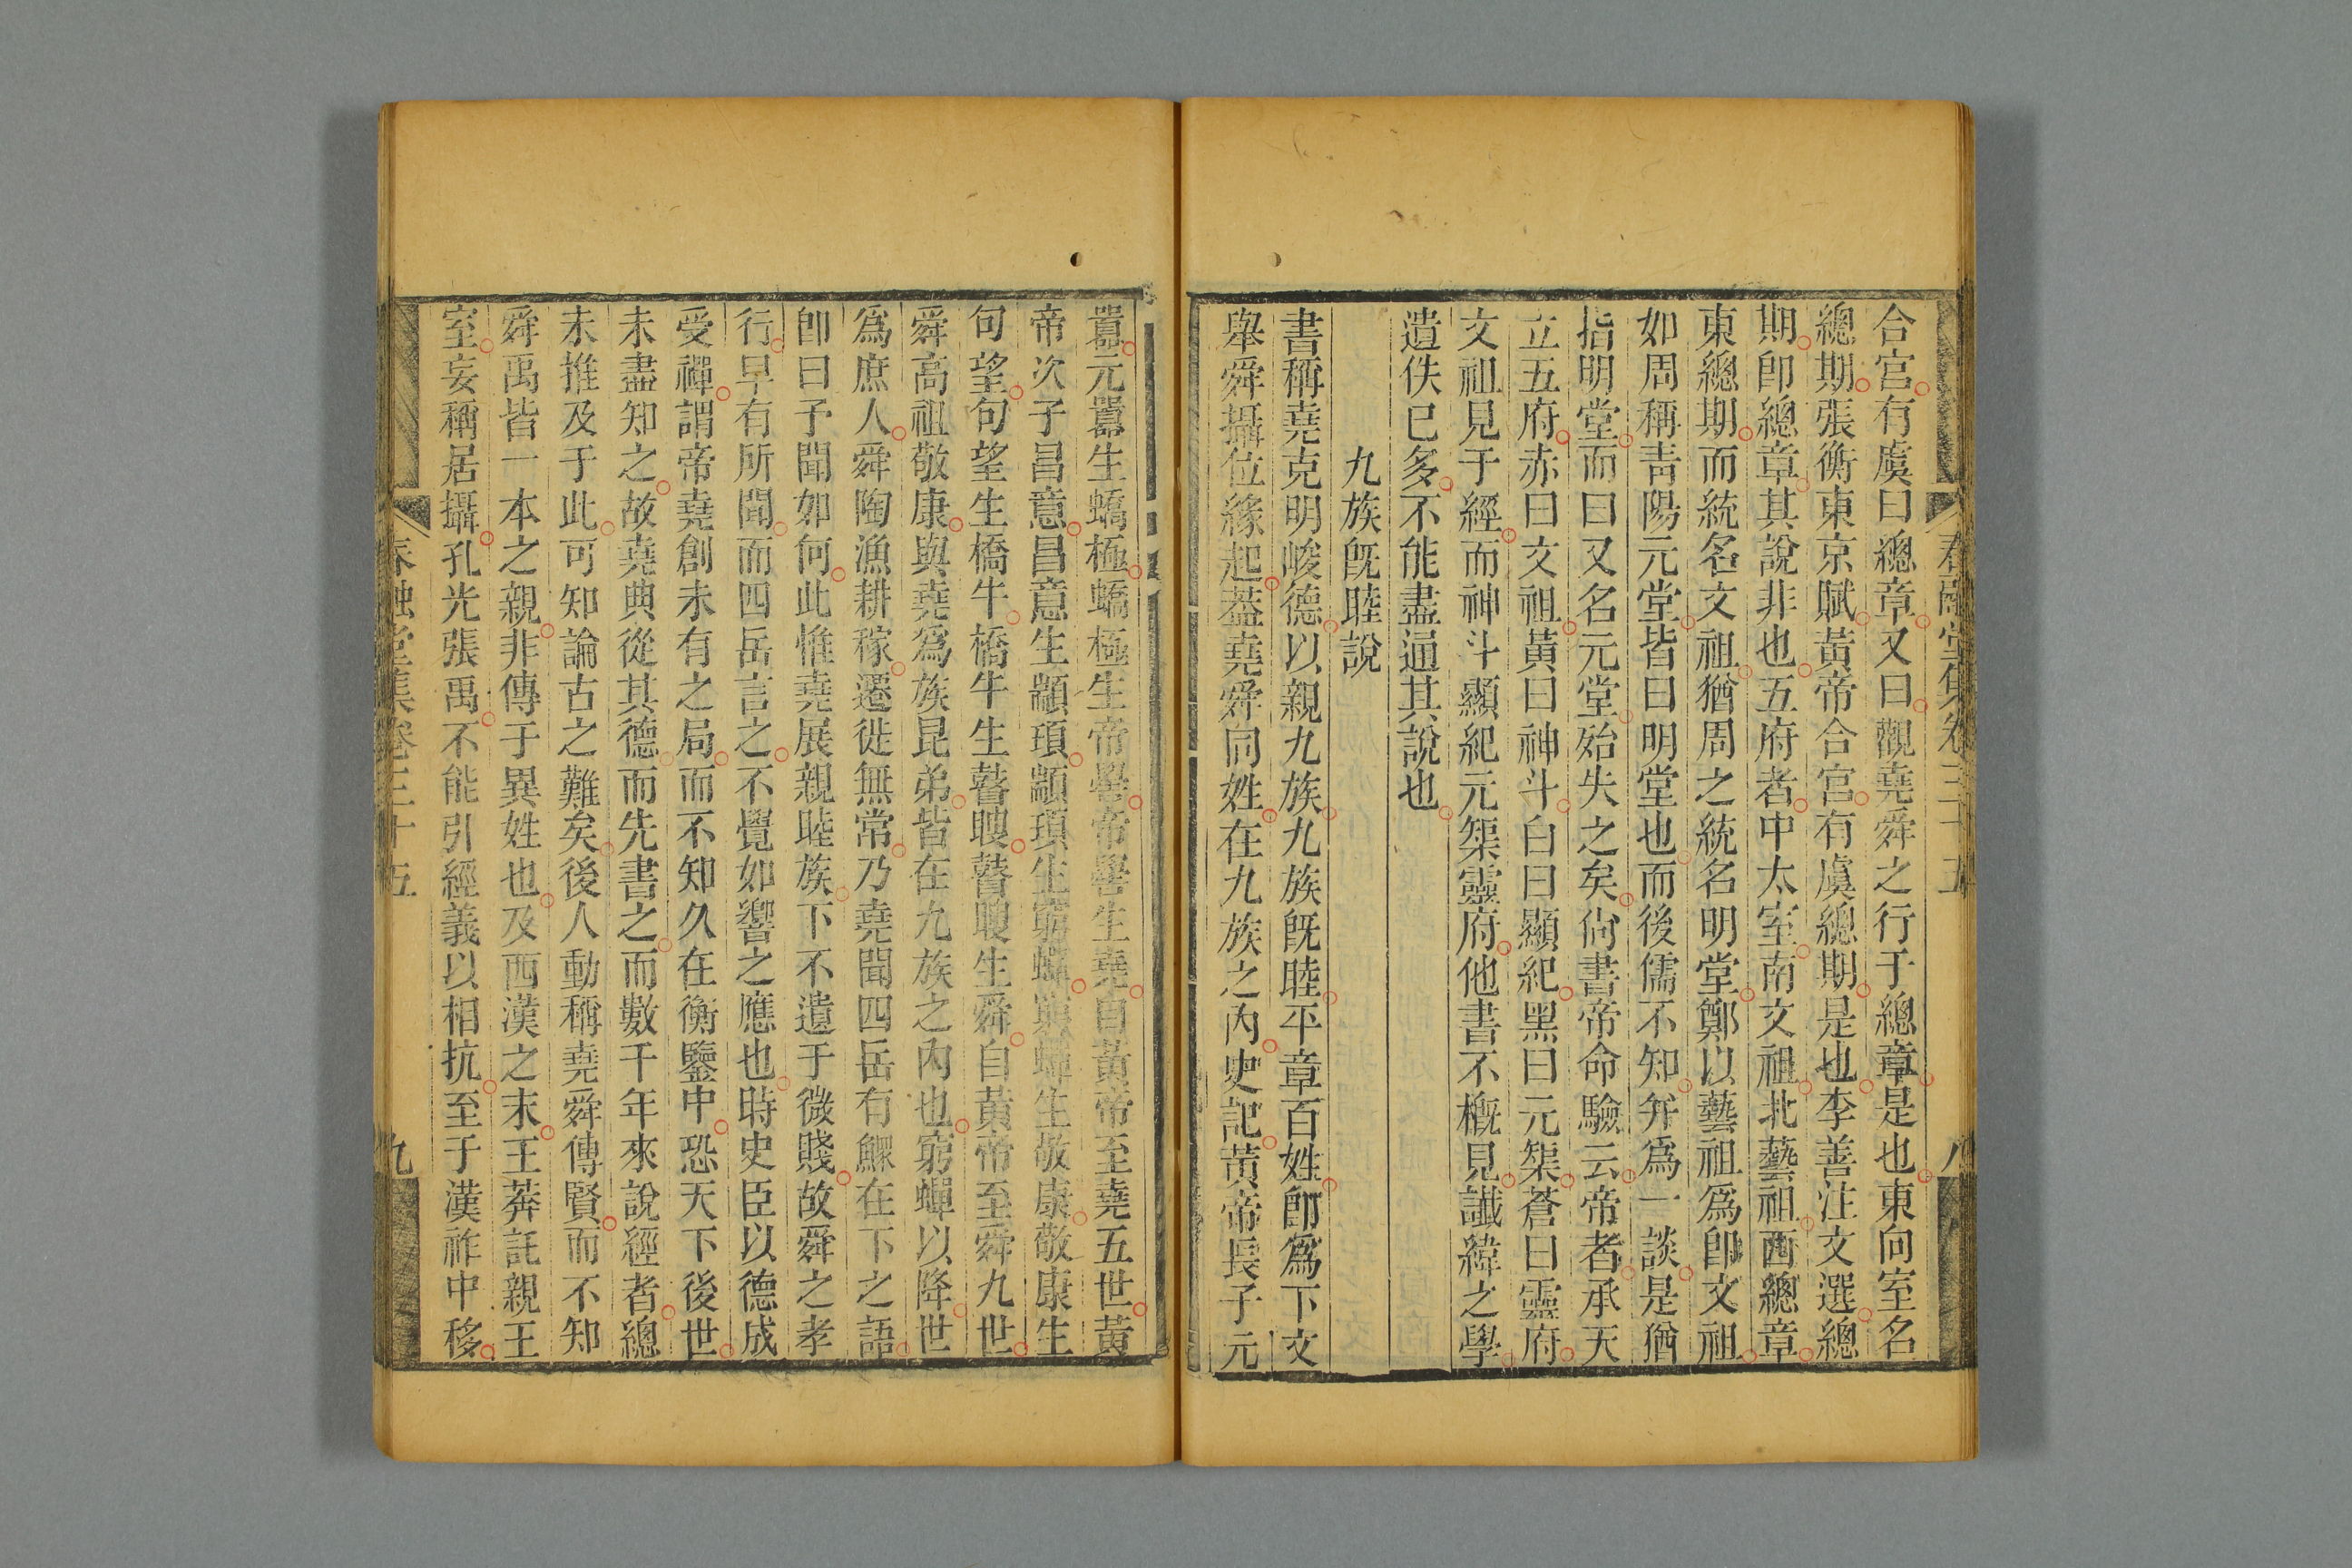 合宮有虞曰總章又曰觀堯舜之行于總章是也東向室名
總期張衡東京賦黃帝合宮有虞總期是也李善注文選總
期卽總章其說非也五府者中太室南文祖北藝祖西總章
東總期而統名文祖猶周之統名明堂鄭以藝祖爲卽文祖
如周稱靑陽元堂皆曰明堂也而後儒不知并爲一談是猶
指明堂而曰又名元堂殆失之矣尙書帝命驗云帝者承天
立五府赤曰文祖黃曰神斗白曰顯紀黑曰元榘蒼曰靈府
文祖見于經而神斗顯紀元榘靈府他書不槪見讖緯之學
遺佚已多不能盡通其說也
九族旣睦說
書稱堯克明峻德以親九族九族旣睦平章百姓卽爲下文
舉舜攝位緣起葢堯舜同姓在九族之內史記黃帝長子元
春融堂集卷三十五
八
囂元囂生蟜極蟜極生帝嚳帝嚳生堯自黃帝至堯五世黃
帝次子昌意昌意生顓頊顓頊生窮蟬窮蟬生敬康敬康生
句望句望生橋牛橋牛生瞽瞍瞽瞍生舜自黃帝至舜九世
舜高祖敬康與堯爲族昆弟皆在九族之內也窮蟬以降世
爲庶人舜陶漁耕稼遷徙無常乃堯聞四岳有鰥在下之語
卽曰予聞如何此惟堯展親睦族下不遺于微賤故舜之孝
行早有所聞而四岳言之不覺如響之應也時史臣以德成
受禪謂帝堯創未有之局而不知久在衡鑒中恐天下後世
未盡知之故堯典從其德而先書之而數千年來說經者總
未推及于此可知論古之難矣後人動稱堯舜傳賢而不知
舜禹皆一本之親非傳于異姓也及西漢之末王莽託親王
室妄稱居攝孔光張禹不能引經義以相抗至于漢祚中移
春融堂集卷三十五
九